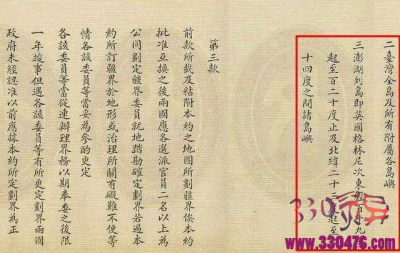 二臺灣全島及所有附屬各島嶼
三澎湖列島即英國格林尼次東經百十九
起至百二十度止及北緯二十三 起至
十四度之間諸島嶼
第三款
前款所載及粘附本約之地圖所劃疆界俟本約
批准互換之後兩國應各選派官員二名以上為
公同劃定疆界委員就地踏勘確定劃界若遇本
約所訂疆界於地形或治理所關有礙難不便等
情各該委員等當妥為參酌更定
各該委員等當從速辦理界務以期奉委之後限
一年竣事但遇各該委員等有所更定劃界兩國
政府未經認准以前應據本約所定劃界為正
330
www.330476.com